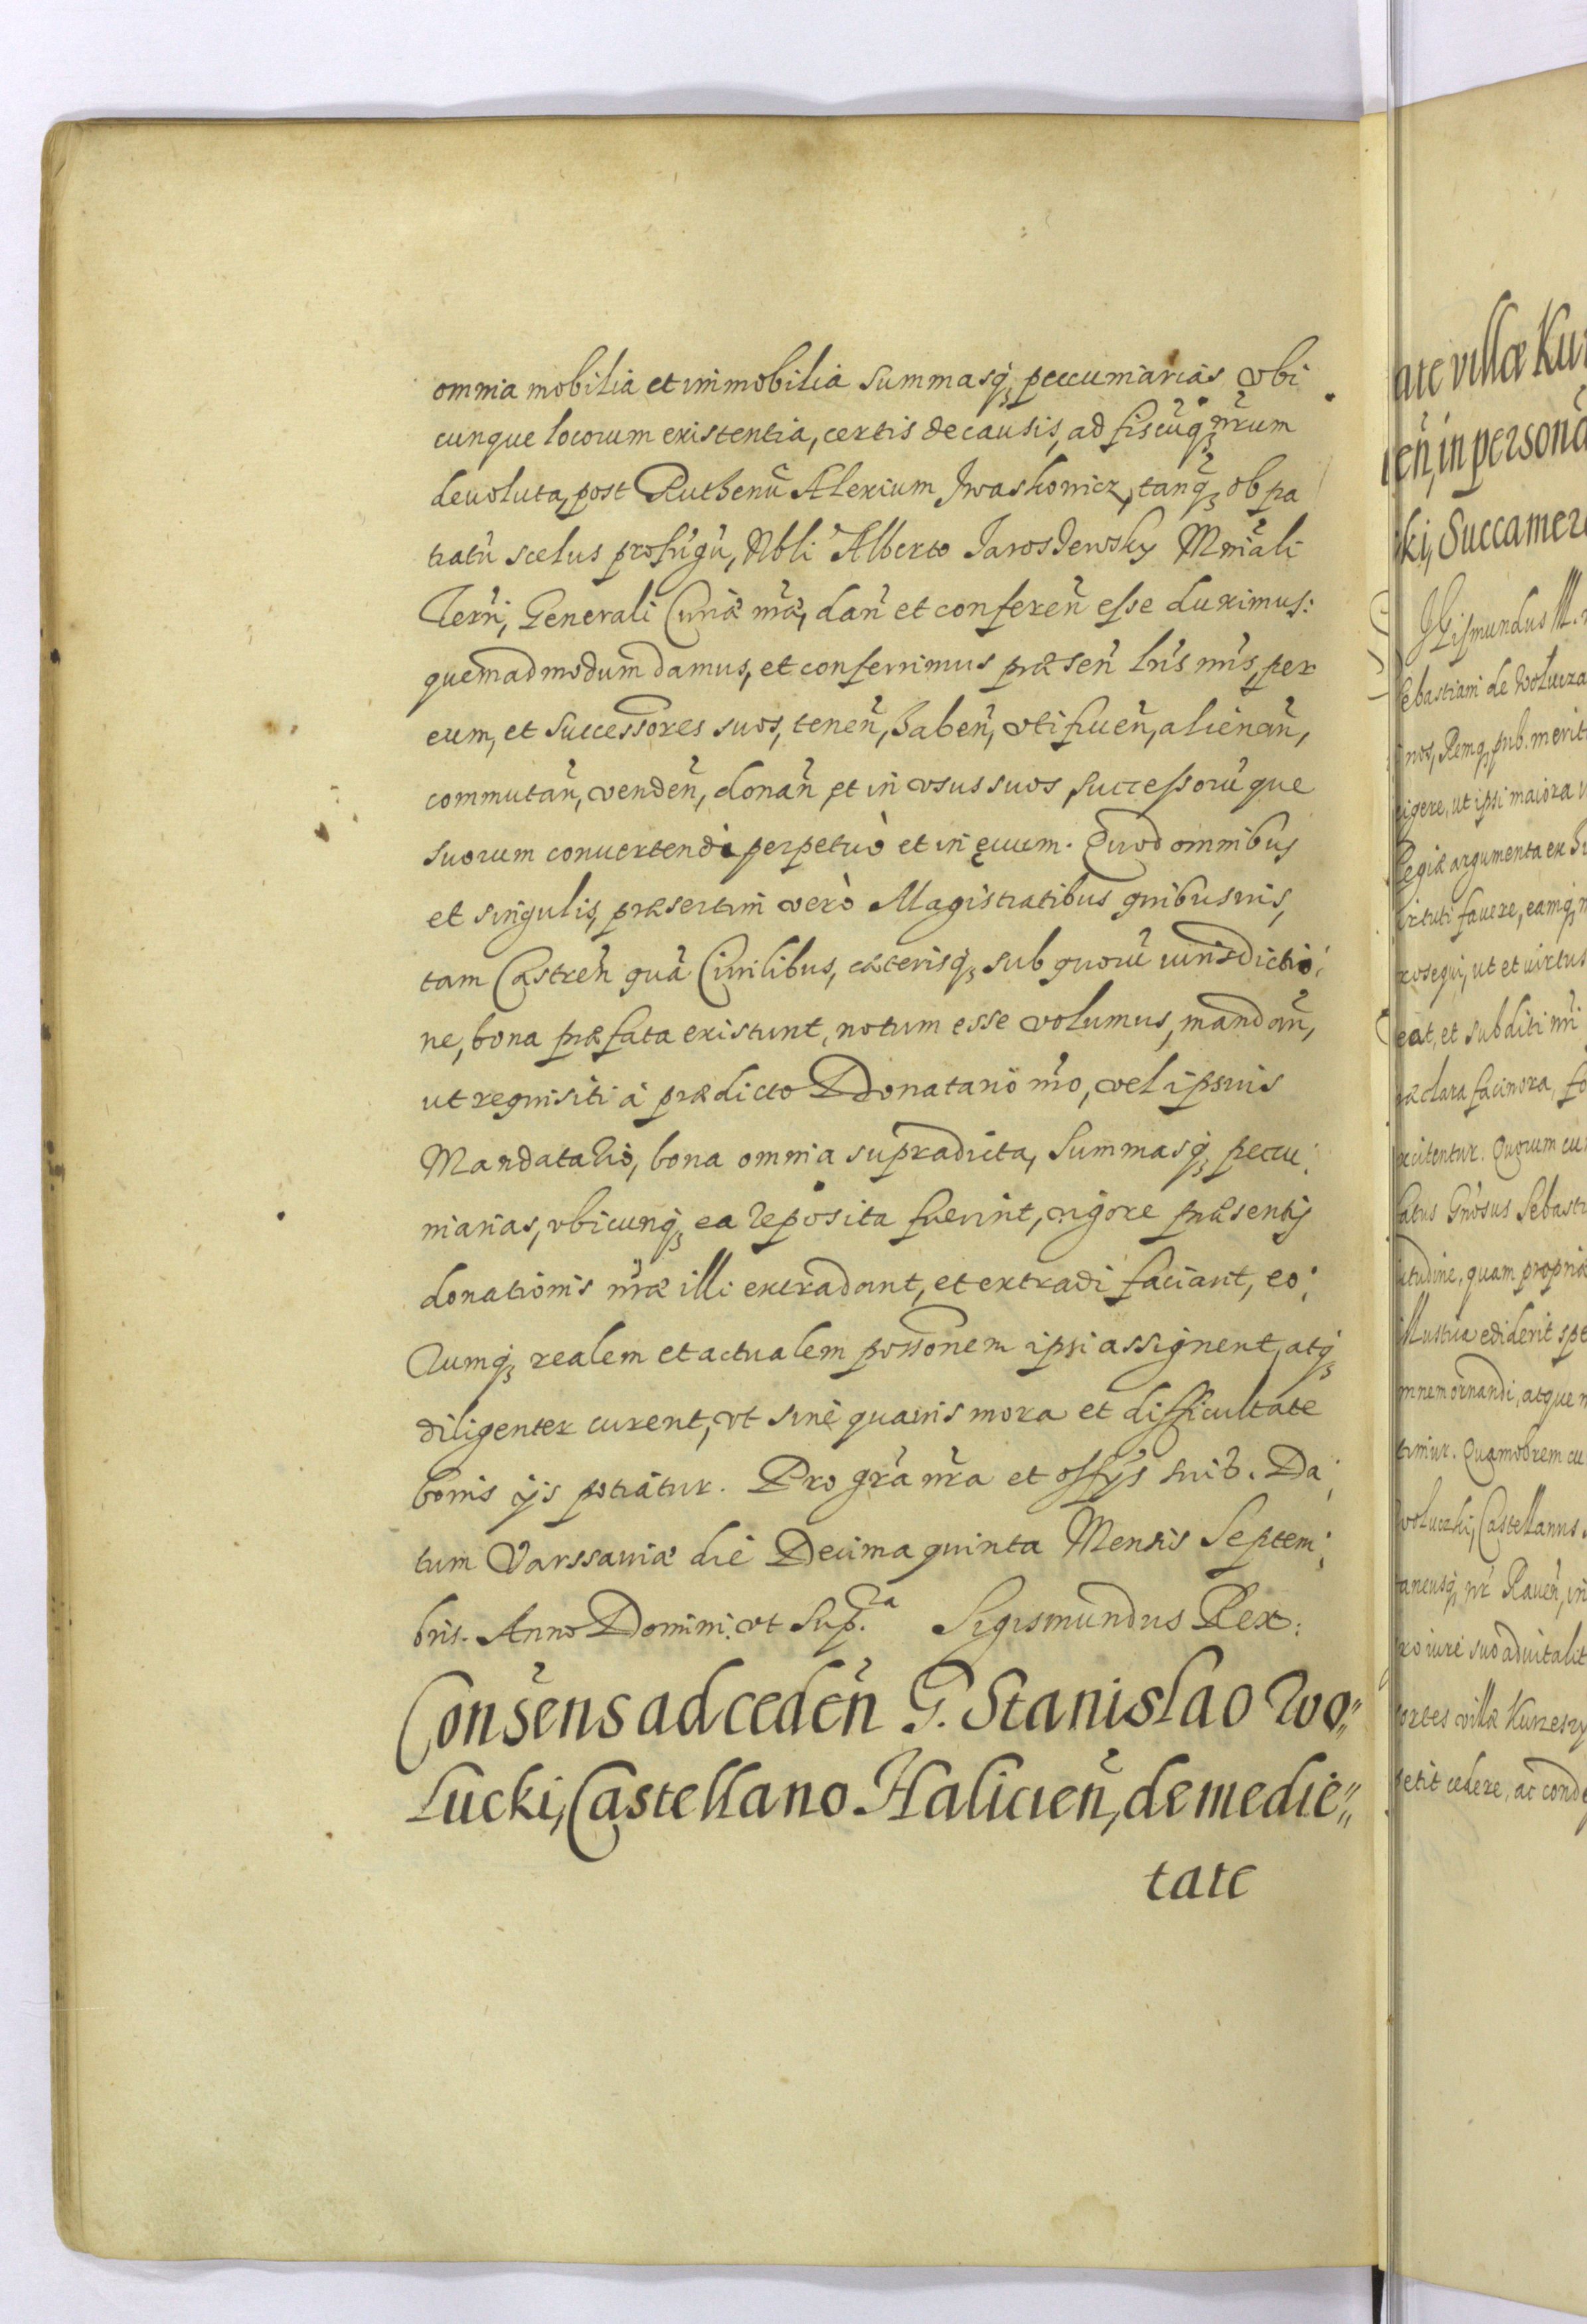 omnia mobilia et immobilia summasq; peccuniarias vbi
cunque locorum existentia, certis de causis, ad fiscũq; nr̃um
deuoluta, post Ruthenũ Alexium Iwaskowicz, tanq̃; ob pa
tratũ scelus profugũ, Nbli Alberto Jaroszewsky Mnĩali
Terñi, Generali Curiæ nr̃æ, dañ et conferen̄ esse duximus:
quemadmodum damus, et conferrimus præsen̄ lr̃is nr̃is, per
eum, et successores suos, tenen̄, haben̄, vti fruen̄, alienan̄,
commutan̄, venden̄, donan̄ et in vsus suos, successorũque
suorum conuertendi perpetuò et in ęuum. Quod omnibus
et singulis, præsertim verò Magistratibus quibusuis,
tam Castren̄ quã Ciuilibus, cæterisq; sub quorũ iurisdictio:
ne, bona præfata existunt, notum esse volumus, mandan̄,
ut requisiti à prædicto Donatario nr̃o, vel ipsius
Mandatario, bona omnia supradicta, summasq; peccu:
niarias, vbicunq; ea reposita fuerint, vigore præsentis
donationis nr̃æ illi extradant, et extradi faciant, eo:
rumq; realem et actualem possõnem ipsi assignent, atq;
diligenter curent, vt sine quauis mora et difficultate
bonis ijs potiatur. Pro grã nr̃a et offijs suis. Da:
tum Varssauiæ die Decima quinta Mensis Septem:
bris. Anno Domini vt sup.ᵃ Sigismundus Rex.
Consens ad ceden̄ G. Stanislao Wo„
lucki, Castellano Halicien̄, de medie„
tate
ate villæ Kur
en̄, in personã
ki, Succamer
Sigismundus III.
Sebastiani de Wolucza
nos, Remq; pub. merit
igere, ut ipsi maiora
Regiæ argumenta ex
irtuti fauere, eamq;
rosequi, ut et uirtus
eat, et subditi nr̃i
æclara facinora, fo
xcitentur. Quorum cu
Gñosus Sebasti
itudine, quam propriæ
illustria ediderit spe
mnem ornandi, atque
timur. Quamobrem cu
Woluczki, Castellanus
aneusq; nr̃ Rauen̄, in
ro iure suo aduitalit
ortes villæ Kurzeszy
petit cedere, ac cond